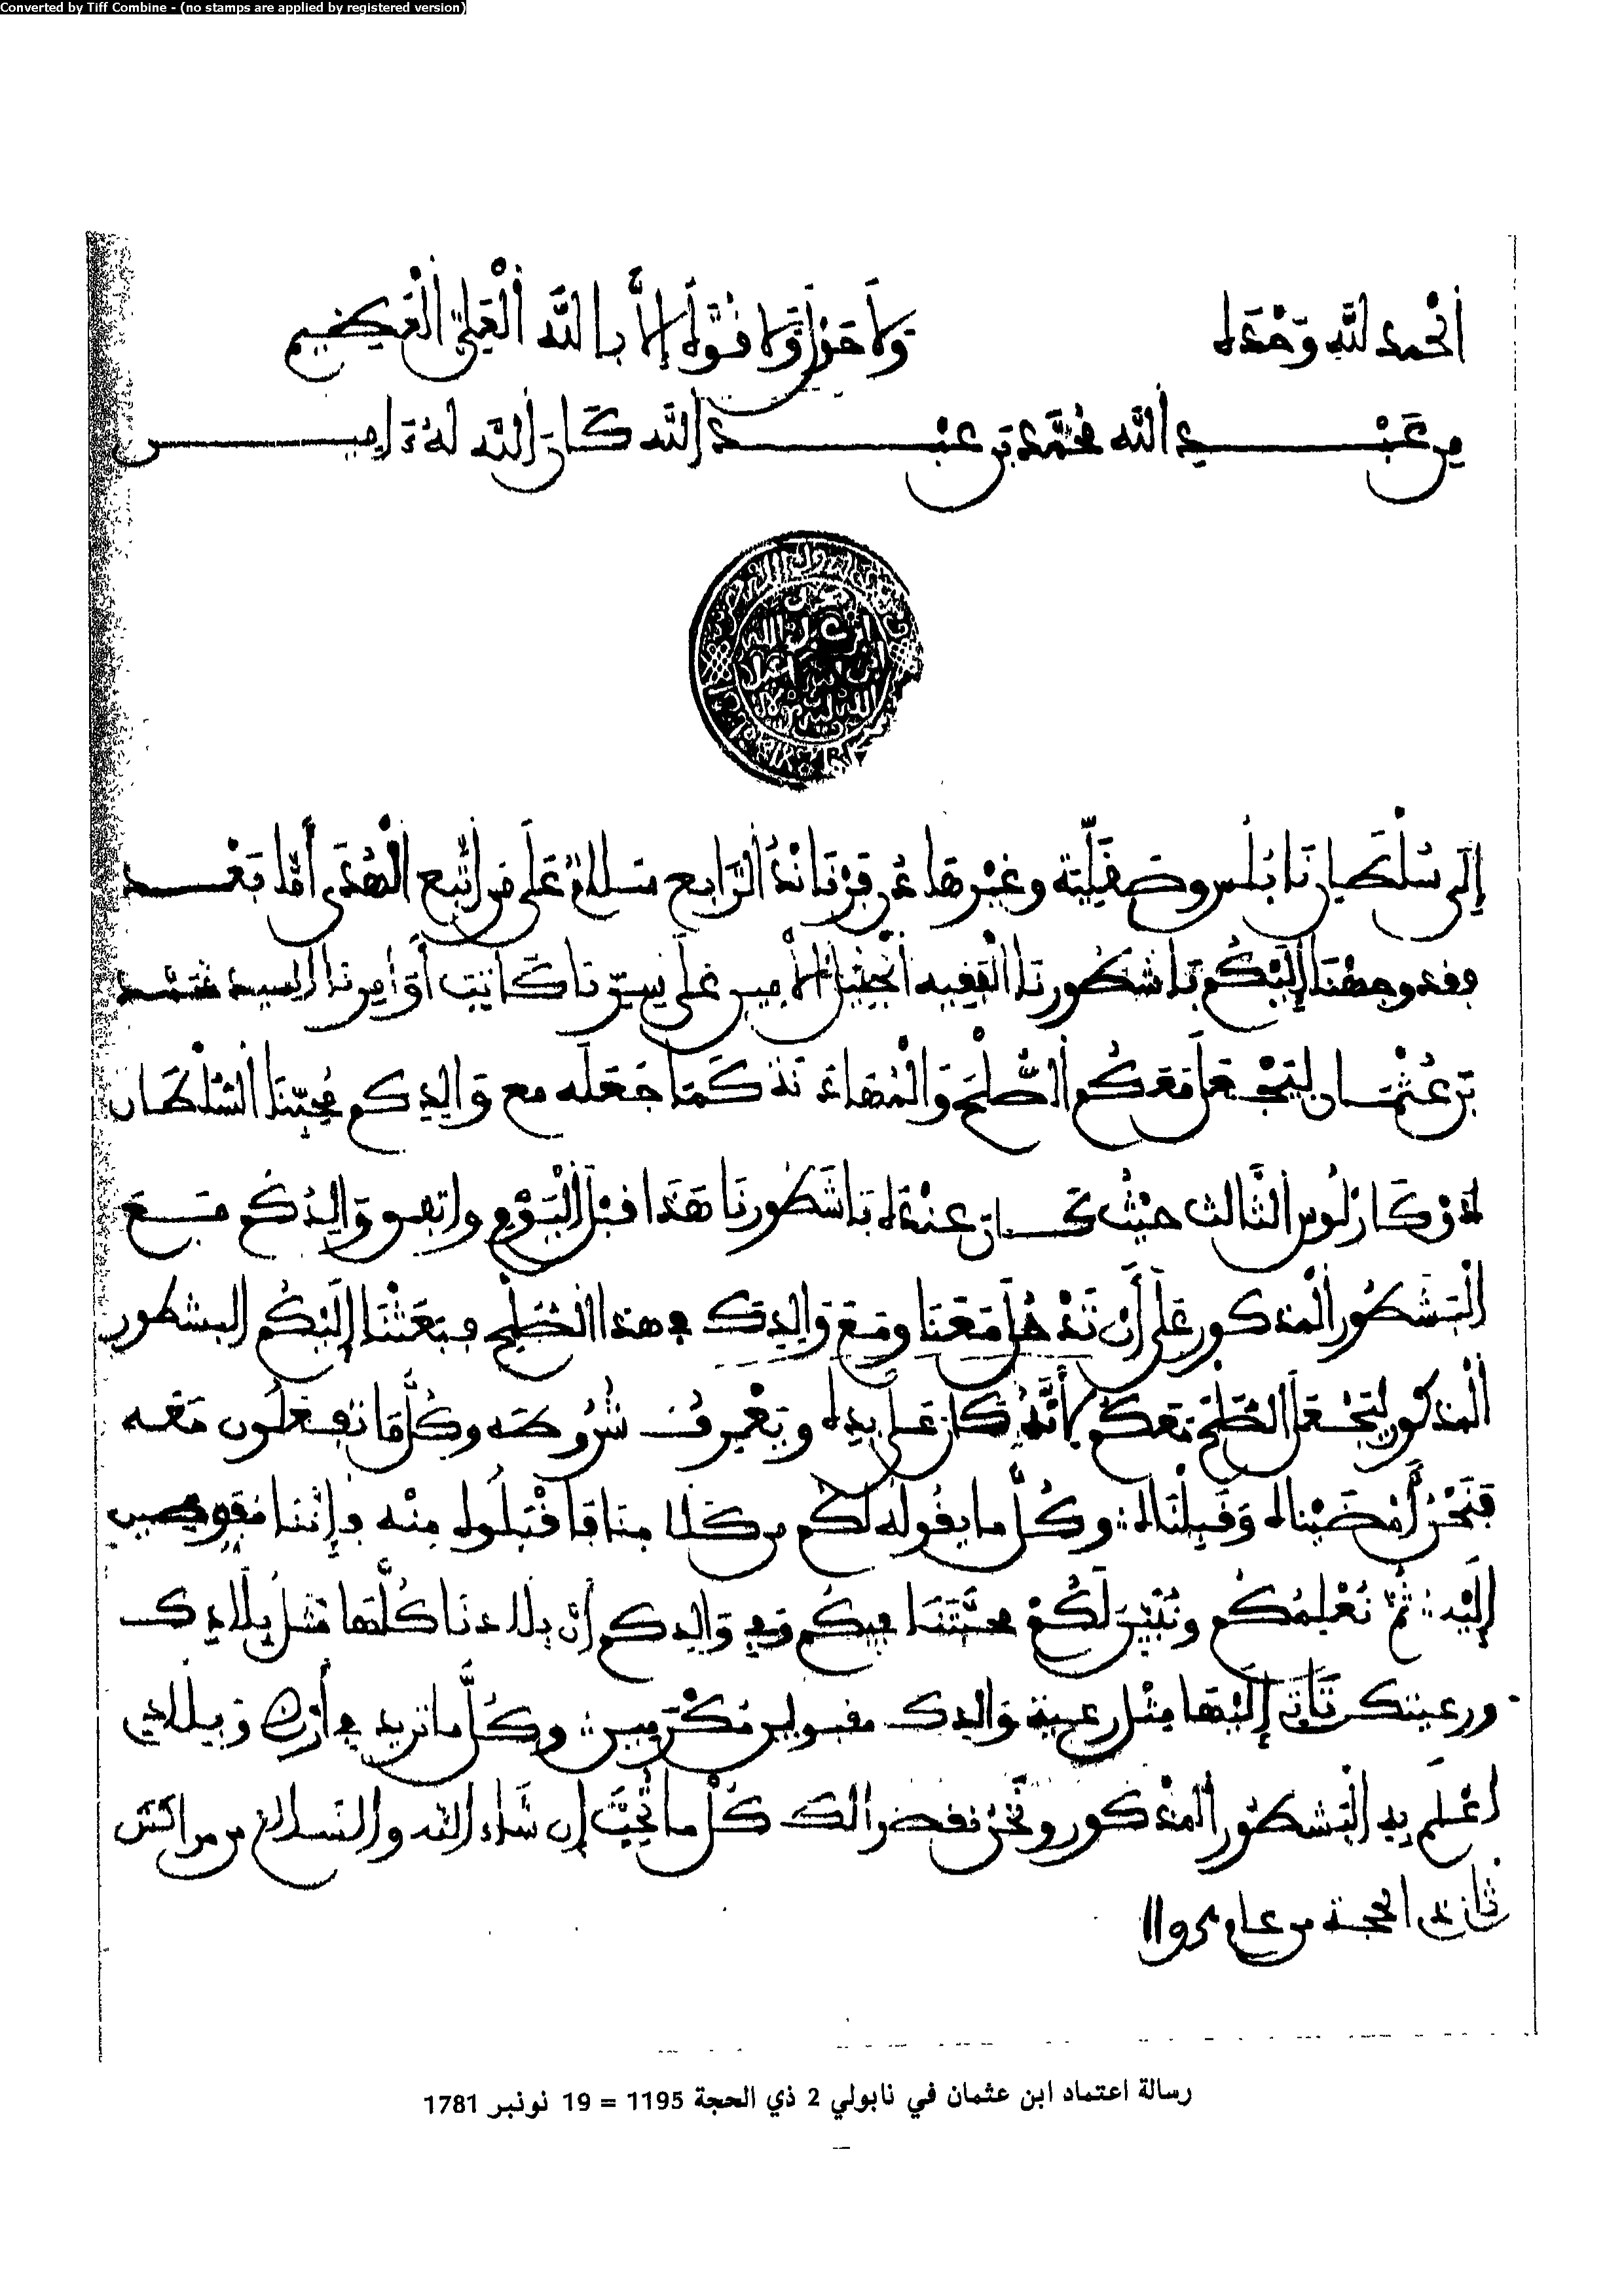 Converted by Tiff Combine - (no stamps are applied by registered version)
الْحمد لله وَحْدَه وَلاَ حَوْلَ وَلاَ قُوَّةَ إِلاَّ بالله الْعَلِيِّ الْعَظِيمِ
مِن عَبْدِ الله مُحَمَّد بن عَبْد الله كَانَ الله لَهُ ءَامين
إِلَى سُلْطَانِ نَابُلس وصَقَلِّيَّة وغيْرها
الرَّابع سَلامٌ عَلَى مَن اتَّبع الْهُدَى أَمَّا بَعْد
فقد وجهْنَا إِلَيْكُم بَاشَطُورنَا الفقيه الأمين عَلَى سِرِّنَا كَاتِب أَوَامِرِنَا السيد مُحَمَّد
بن عُثْمَان لِيَجْعَلَ مَعَكُم الصُّلْحَ وَالْمُهَادَنَة كَمَا جَعَلَه مع وَالِدِكم مُحِبِّنَا السُّلْطَان
كَارْلُوس الثَّالث حيْثُ كَان عِنْدَه بَاشَطُورنَا هَذَا قَبْلَ الْيَوْم واتفق وَالِدُكُم مَعَ
الْبَشَطُورِ الْمذكور عَلَى أَنْ تَدْخُلَ مَعَنَا ومَعَ وَالِدِك في هذا الصُّلْحِ فبَعَثْنَا إِلَيْكُم البشطور
الْمذكور لِيَجْعَلَ الصُّلْحَ مَعَكُم لأَنَّهُ كان عَلَى يدِه ويَعْرِفُ شُرُوطَه وكُلُّ مَا تفعَلُون مَعَه
فَنَحْنُ أَمْضَيْنَاه وَقَبِلْنَاه وكُلُّ ما يقُولُه لَكُم مِن كَلامِنَا فَاقْبَلُوه مِنْه فإِنَّنَا
إِلَيْه ثُمَّ نُعْلِمُكُمْ ونُبَيِّنُ لَكُمْ مَحَبَّتَنَا فِيكُم وفي وَالِدِكم أَنَّ بِلادَنَا كُلَّهَا مثْلُ بِلَادِك
ورعيتك تَأْتِي إِلَيْهَا مِثْل رعية وَالِدِك مقبولين مُكْرَمِين وكُلُّ ما تريد في
اعْلَم بِه الْبَشَطُورَ الْمذكور ونَحْنُ نقض لك كُلّ ما تُحِبّ إن شَاء الله والسَّلام من مراكش
ثاني الحجة من عام 1195
رسالة اعتماد ابن عثمان في نابولي 2 ذي الحجة 1195 = 19 نونبر 1781